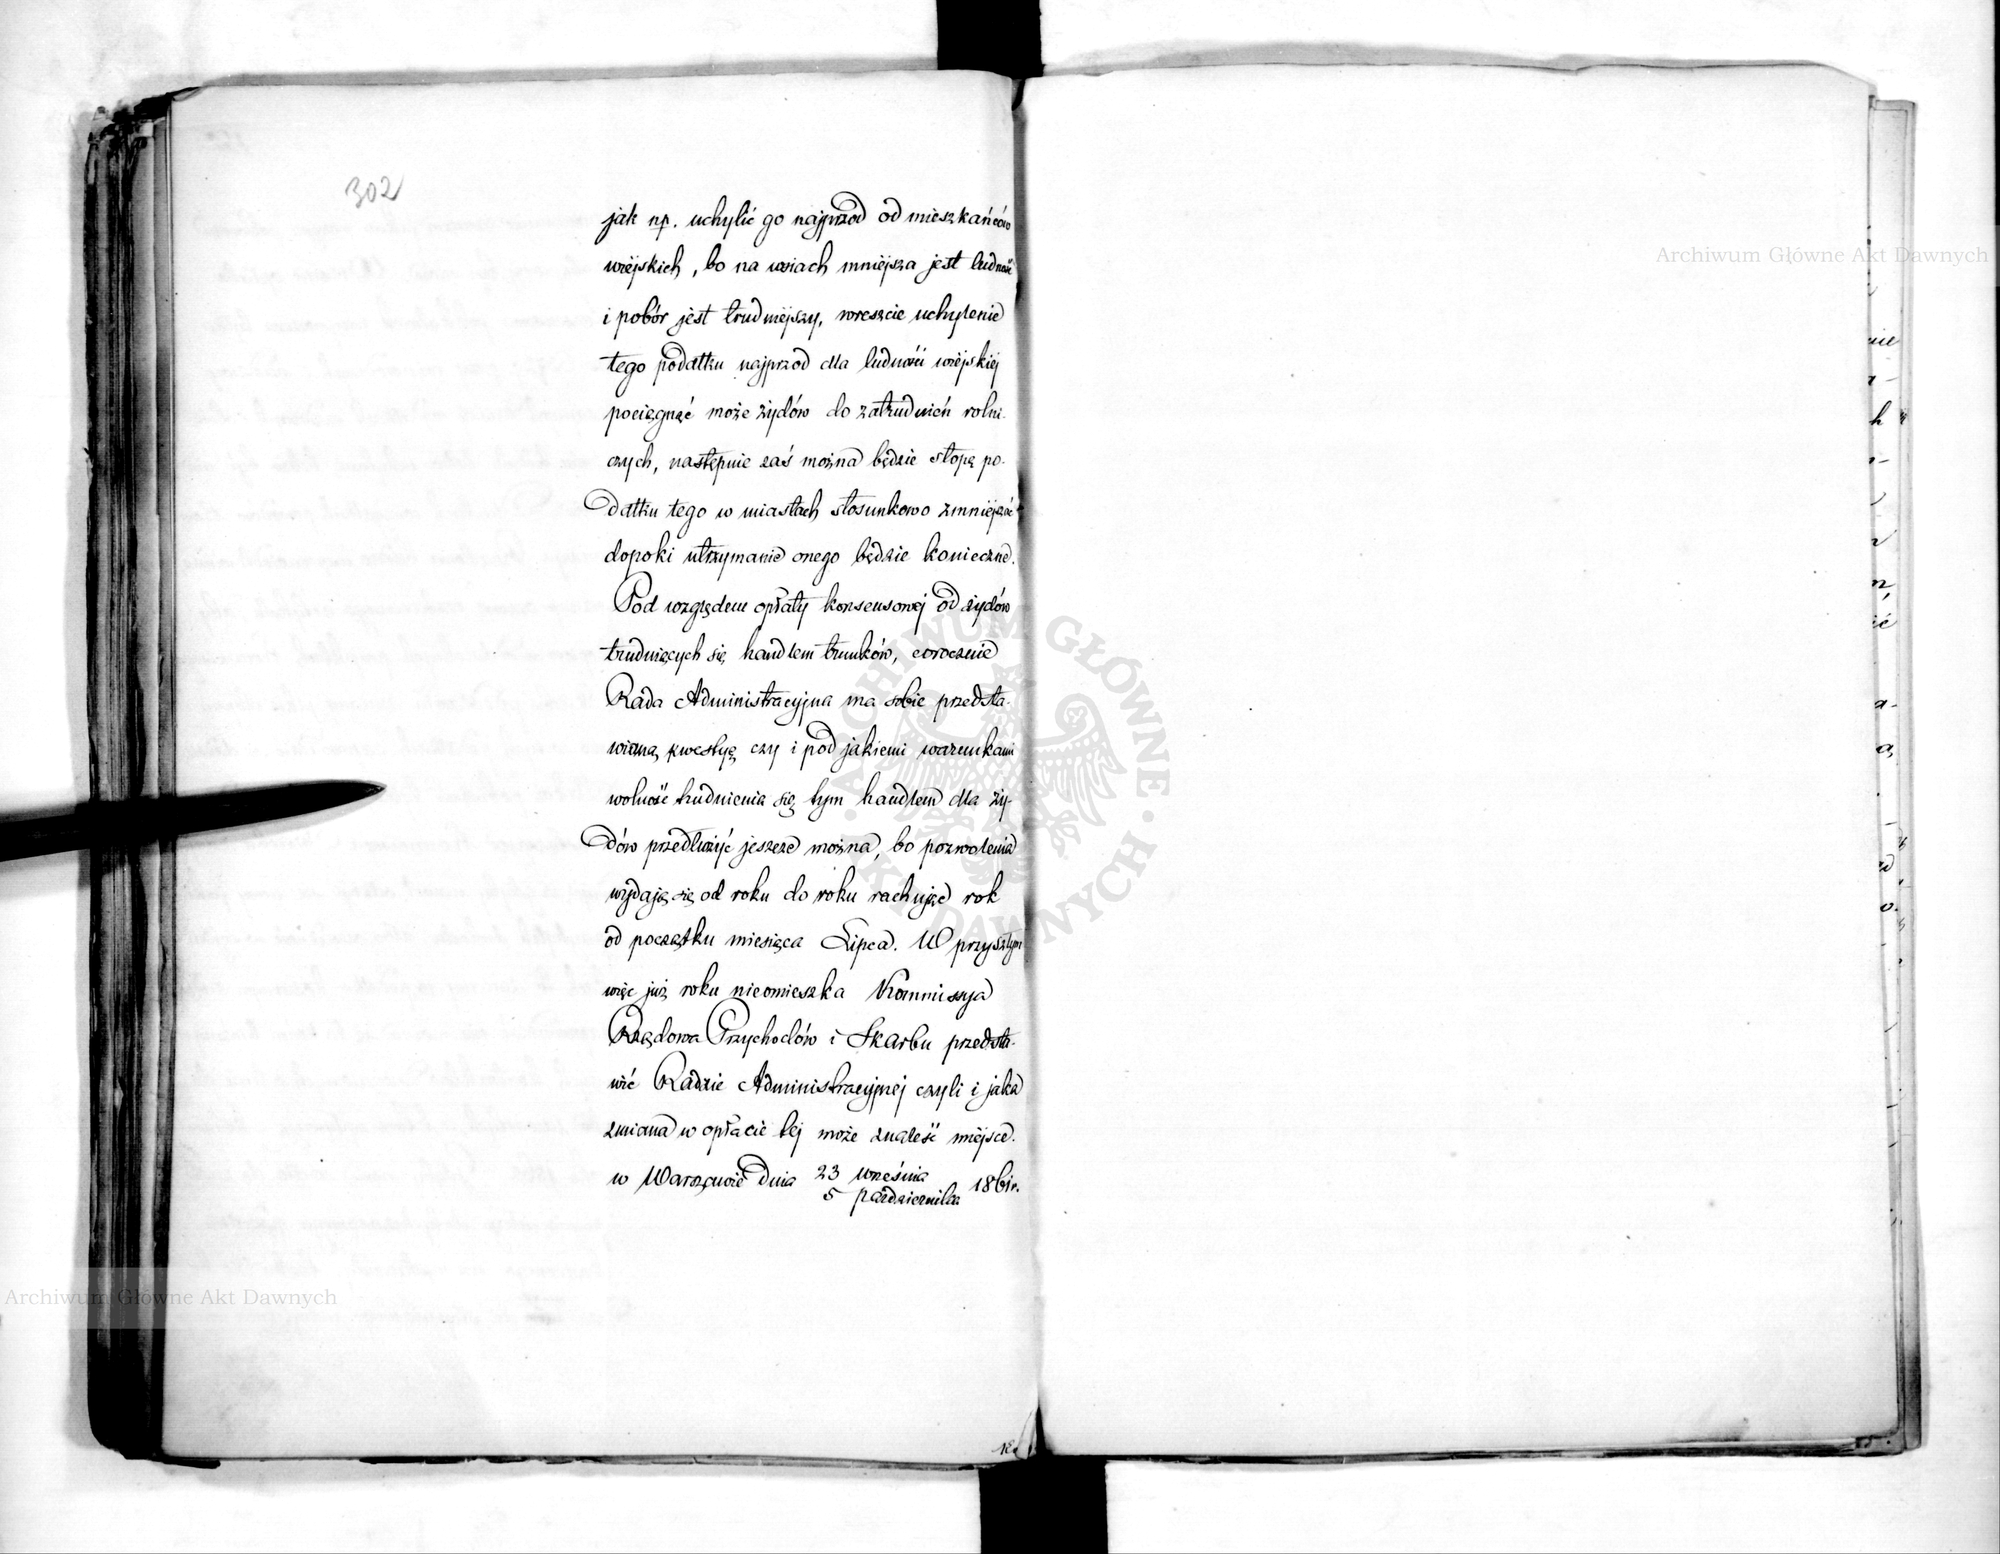 302
jak np. uchylić go najprzod od mieszkańców
wiejskich, bo na wsiach mniejsza jest ludność
i pobór jest trudniejszy, wreszcie uchylenie
tego podatku najprzod dla ludności wiejskiej
pociągnąć może żydów do zatrudnień rolni-
czych, następnie zaś można będzie stopę po-
datku tego w miastach stosunkowo zmniejszać
dopoki utrzymanie onego będzie konieczne.
Pod względem opłaty konsensowej od żydów
trudniących się handlem trunków, corocznie
Rada Administracyjna ma sobie przedsta-
wianą kwestyę czy i pod jakiemi warunkami
wolność trudnienia się tym handlem dla ży-
dów przedłużyć jeszcze można, bo pozwolenia
wydają się od roku do roku rachując rok
od początku miesiąca Lipca. W przyszłym
więc już roku nieomieszka Kommissya
Rządowa Przychodów i Skarbu przedsta-
wić Radzie Administracyjnej czyli i jaka
zmiana w opłacie tej może znaleść miejsce.
w Warszawie dnia 23 Września
5 października 1861 r.
Archiwum Główne Akt Dawnych
Archiwum Główne Akt Dawnych
ARCHIWUM GŁÓWNE AKT DAWNYCH